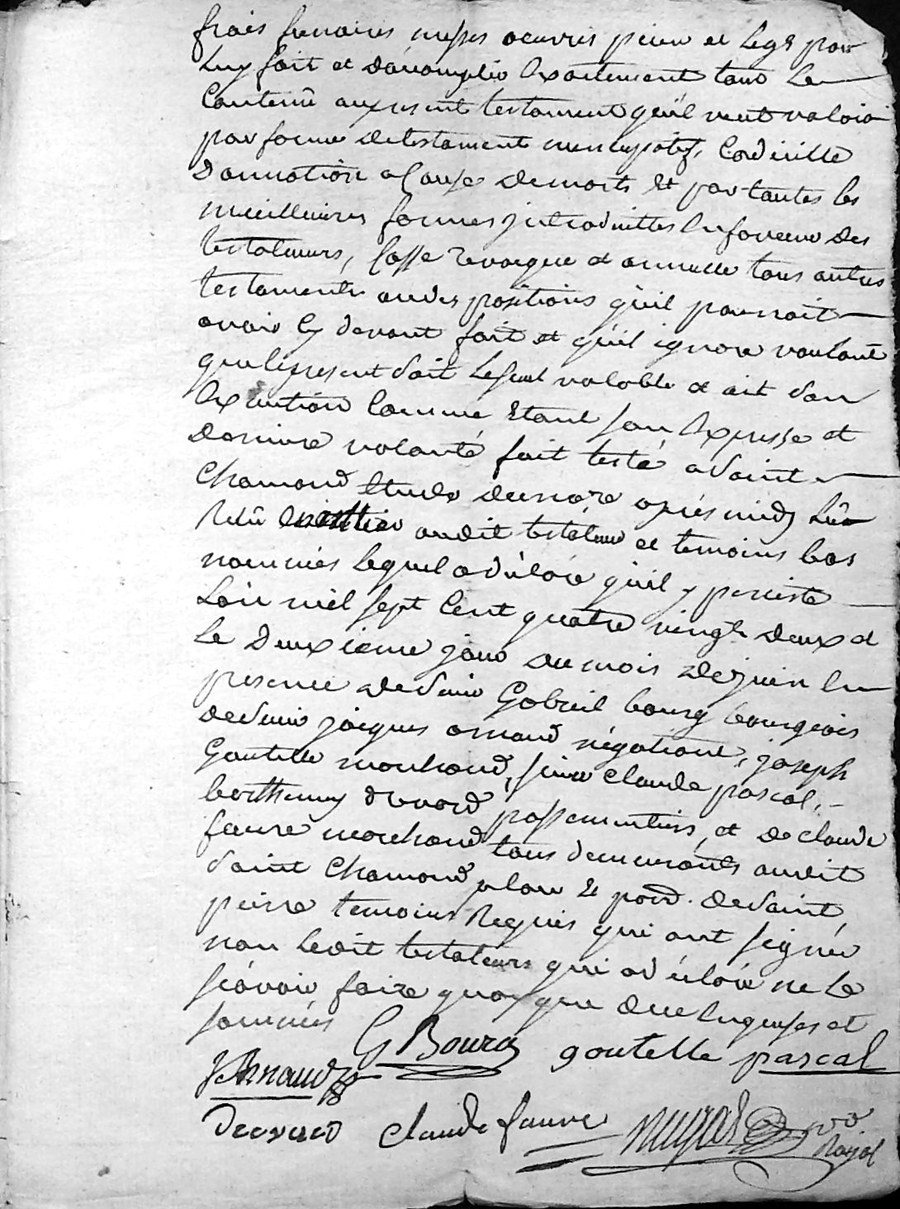 frais funeraires messes oeuvres pieux et legs par
luy fait et d'accomplir exactement tout le
Contenû au present testament qu'il veut valoir
par forme de testament nuncupatif, Codicille
donnation a Cause de mort et par toutes les
meilleures formes introduittes en faveur des
testateurs, Casse revoque et annulle tous autres
testaments ou dispositions qu'il pourroit
avoir cy devant fait et qu'il ignore voulant
que le present soit le seul valable et ait son
Execution Comme Etant son Expresse et
derniere volonté fait testé a Saint
Chamond Etude du nore après midy lû
Relû en entier audit testateur et temoins bas
nommés lequel a déclaré qu'il y persiste
L'an mil sept Cent quatre vingt deux et
le deuxieme jour du mois de juin en
presence de Sieur Gabriel bourg bourgeois
de Sieur jacques arnaud négotiant, joseph
Goutelle marchand, Claude pascal,
berthemy drevard passementiers, et de claude
faure marchand tous demeurants audit
Saint Chamond plou et parr. de Saint
pierre temoins Requis qui ont signés
non ledit testateur qui a déclaré ne le
sçavoir faire quoyque de ce enquis et
sommés
G Bourg goutelle pascal
J Arnaud
drevard claude faure no
Royal